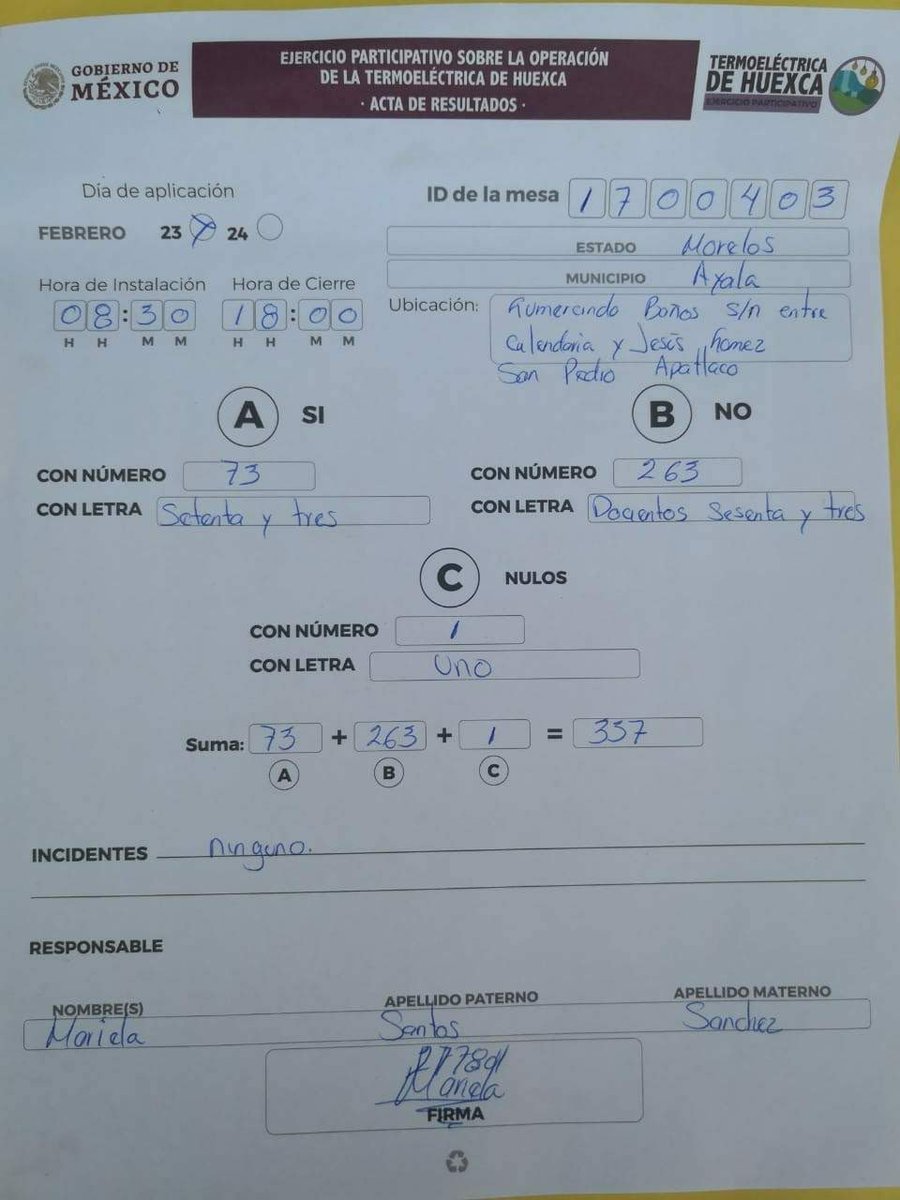 GOBIERNO DE MÉXICO
EJERCICIO PARTICIPATIVO SOBRE LA OPERACIÓN
DE LA TERMOELÉCTRICA DE HUEXCA
· ACTA DE RESULTADOS ·
TERMOELÉCTRICA
DE HUEXCA
EJERCICIO PARTICIPATIVO
Día de aplicación
FEBRERO 23 24
ID de la mesa 1700403
ESTADO Morelos
MUNICIPIO Ayala
Hora de Instalación Hora de Cierre
08:30 18:00
H H M M H H M M
Ubicación: Gumercindo Baños s/n entre
Calendaria y Jesús Gomez
San Pedro Apatlaco
A SI
B NO
CON NÚMERO 73
CON NÚMERO 263
CON LETRA Setenta y tres
CON LETRA Docentos Sesenta y tres
C NULOS
CON NÚMERO 1
CON LETRA Uno
Suma: 73 + 263 + 1 = 337
A B C
INCIDENTES ninguno.
RESPONSABLE
NOMBRE(S) APELLIDO PATERNO APELLIDO MATERNO
Mariela Santos Sanchez
Mariela
FIRMA